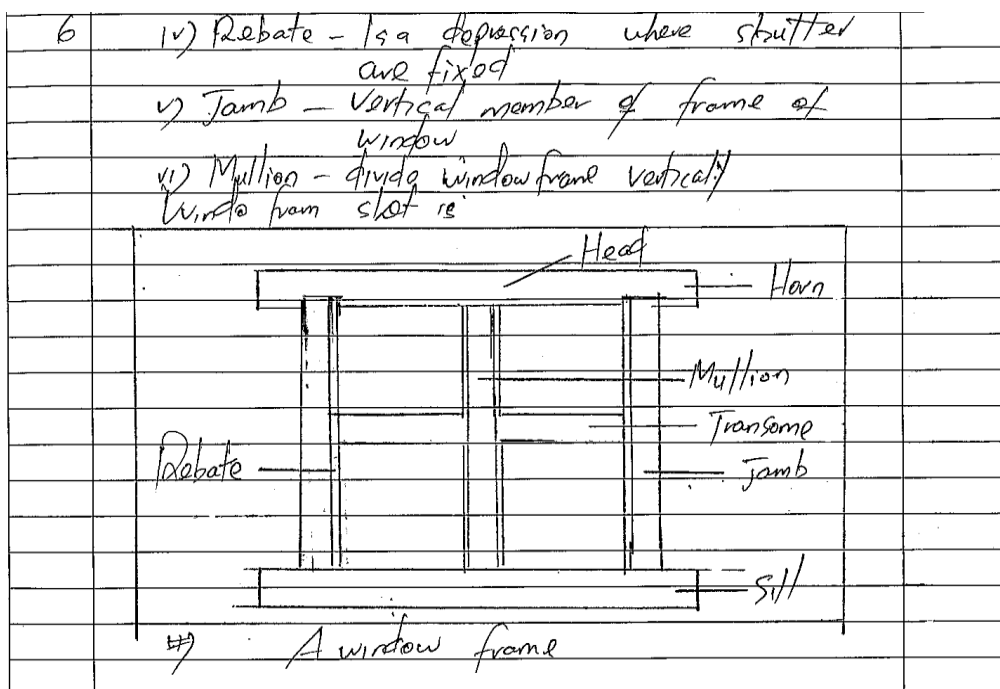 6 iv) Rebate - Is a depression where shutter
are fixed
v) Jamb - Vertical member of frame of
window
vi) Mullion - divide window frame vertically
Windo fram slot is
Head
Horn
Mullion
Transome
Rebate
Jamb
Sill
A window frame